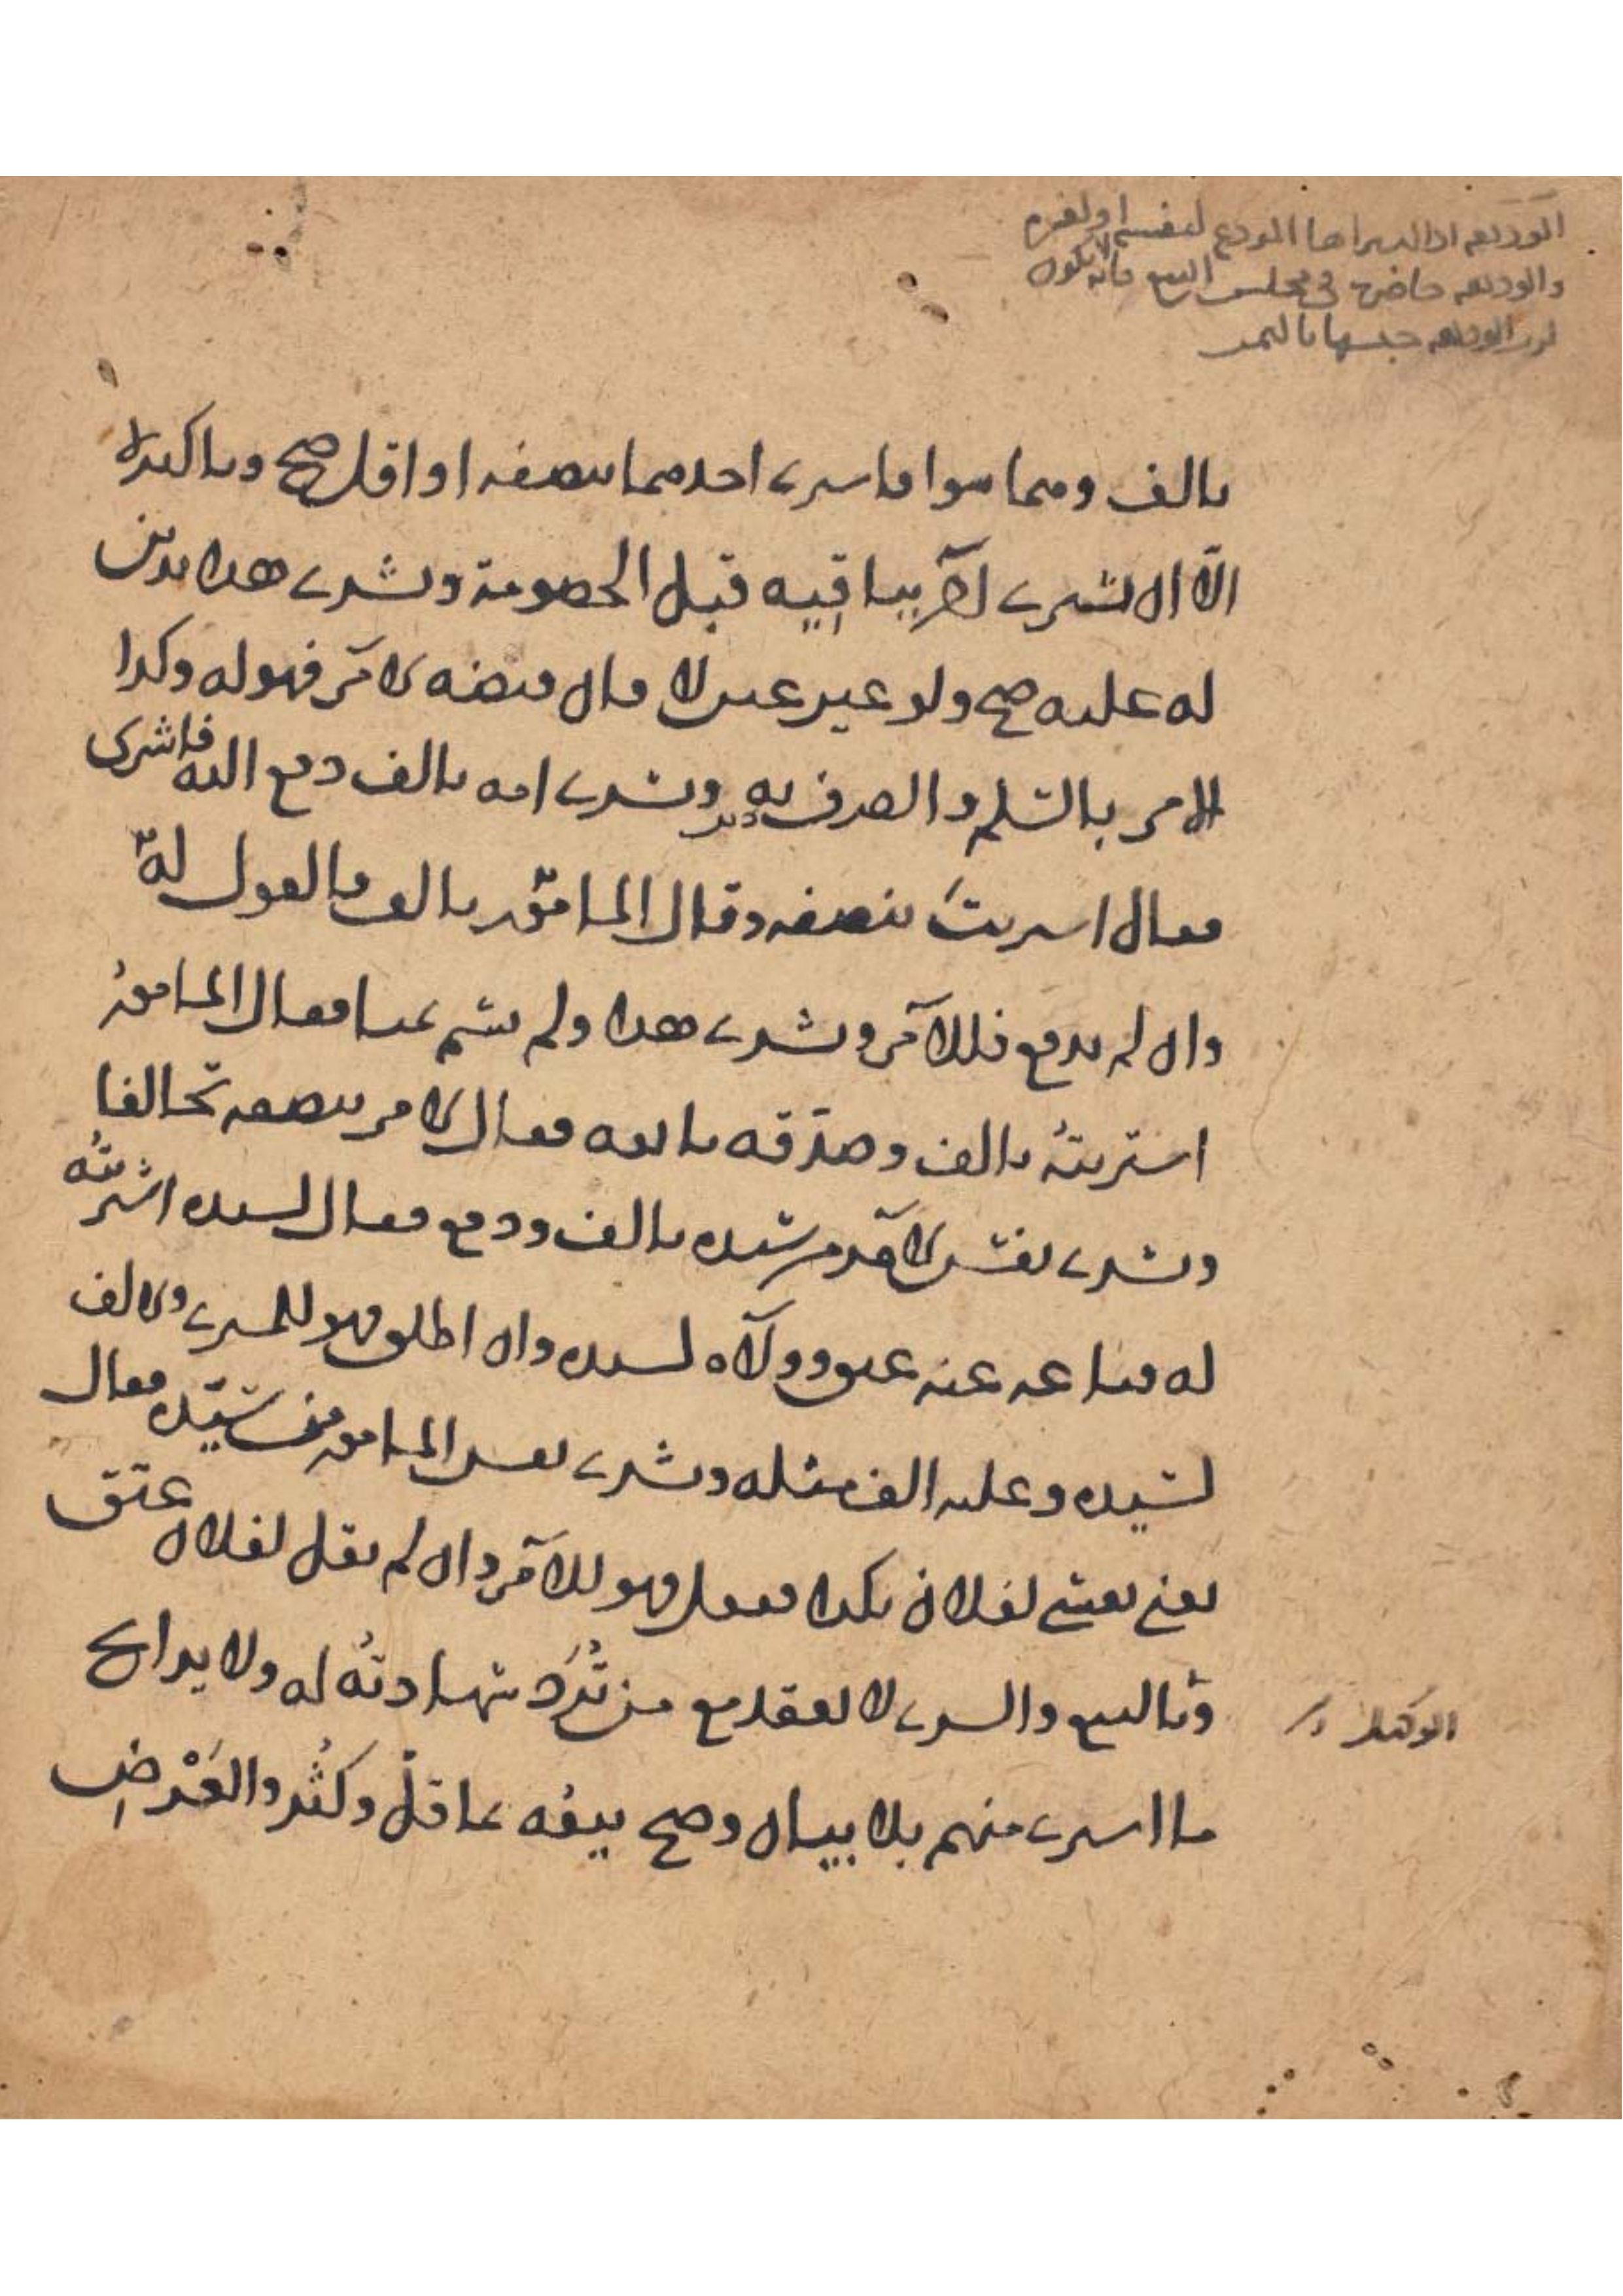 الوديعة اذا اشتراها المودع لنفسه او لغيره
والوديعة حاضرة في مجلس البيع فانه لا يكون
لرب الوديعة حبسها بالثمن
بالف وهما سوا فاشرى احدهما بنصفه او اقل صح وبالاكثر لا
الا ان يشترى الآخر بباقيه قبل الخصومة وبشرى هذا بدين
له عليه صح ولو غير عين لا فان قبضه الآمر فهو له وكذا
الامر بالسلم والصرف به وبشرى امه بالف دفع اليه فاشرى
فقال اشتريت بنصفه وقال المامور بالف فالقول له
وان لم يدفع فللآمر وبشرى هذا ولم يسم ثمنا فقال المامور
اشتريته بالف وصدقه بائعه فقال الآمر بنصفه تحالفا
وبشرى نفس الآمر من سيده بالف ودفع فقال لسيده اشتريته
له فباعه عنه عتق وولآه لسيده وان اطلق فهو للمشرى والالف
لسيده وعليه الف مثله وبشرى نفس المامور من سيده فقال
بعني نفسي لفلان بكذا ففعل فهو للآمر وان لم يقل لفلان عتق
وبالبيع والشرى لا يعقد مع من ترد شهادته له ولا يرابح
ما اشرى منهم بلا بيان وصح بيعه بما قل وكثر والعرض
الوكيل